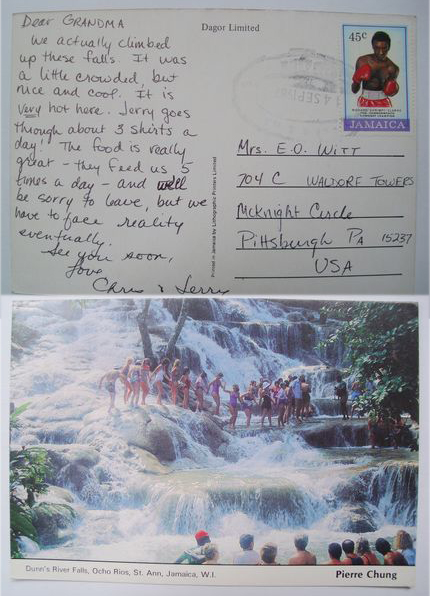 Dear GRANDMA
We actually climbed
up these falls. It was
a little crowded, but
nice and cool. It is
very hot here. Jerry goes
through about 3 shirts a
day! The food is really
great - they feed us 5
times a day - and we'll
be sorry to leave, but we
have to face reality
eventually.
See you soon,
Love
Chris & Jerry
Dagor Limited
Printed in Jamaica by Lithographic Printers Limited
45c
JAMAICA
14 SEP
Mrs. E.O. WITT
704 C WALDORF TOWERS
McKnight Circle
Pittsburgh PA 15237
USA
Dunn's River Falls, Ocho Rios, St. Ann, Jamaica, W.I.
Pierre Chung